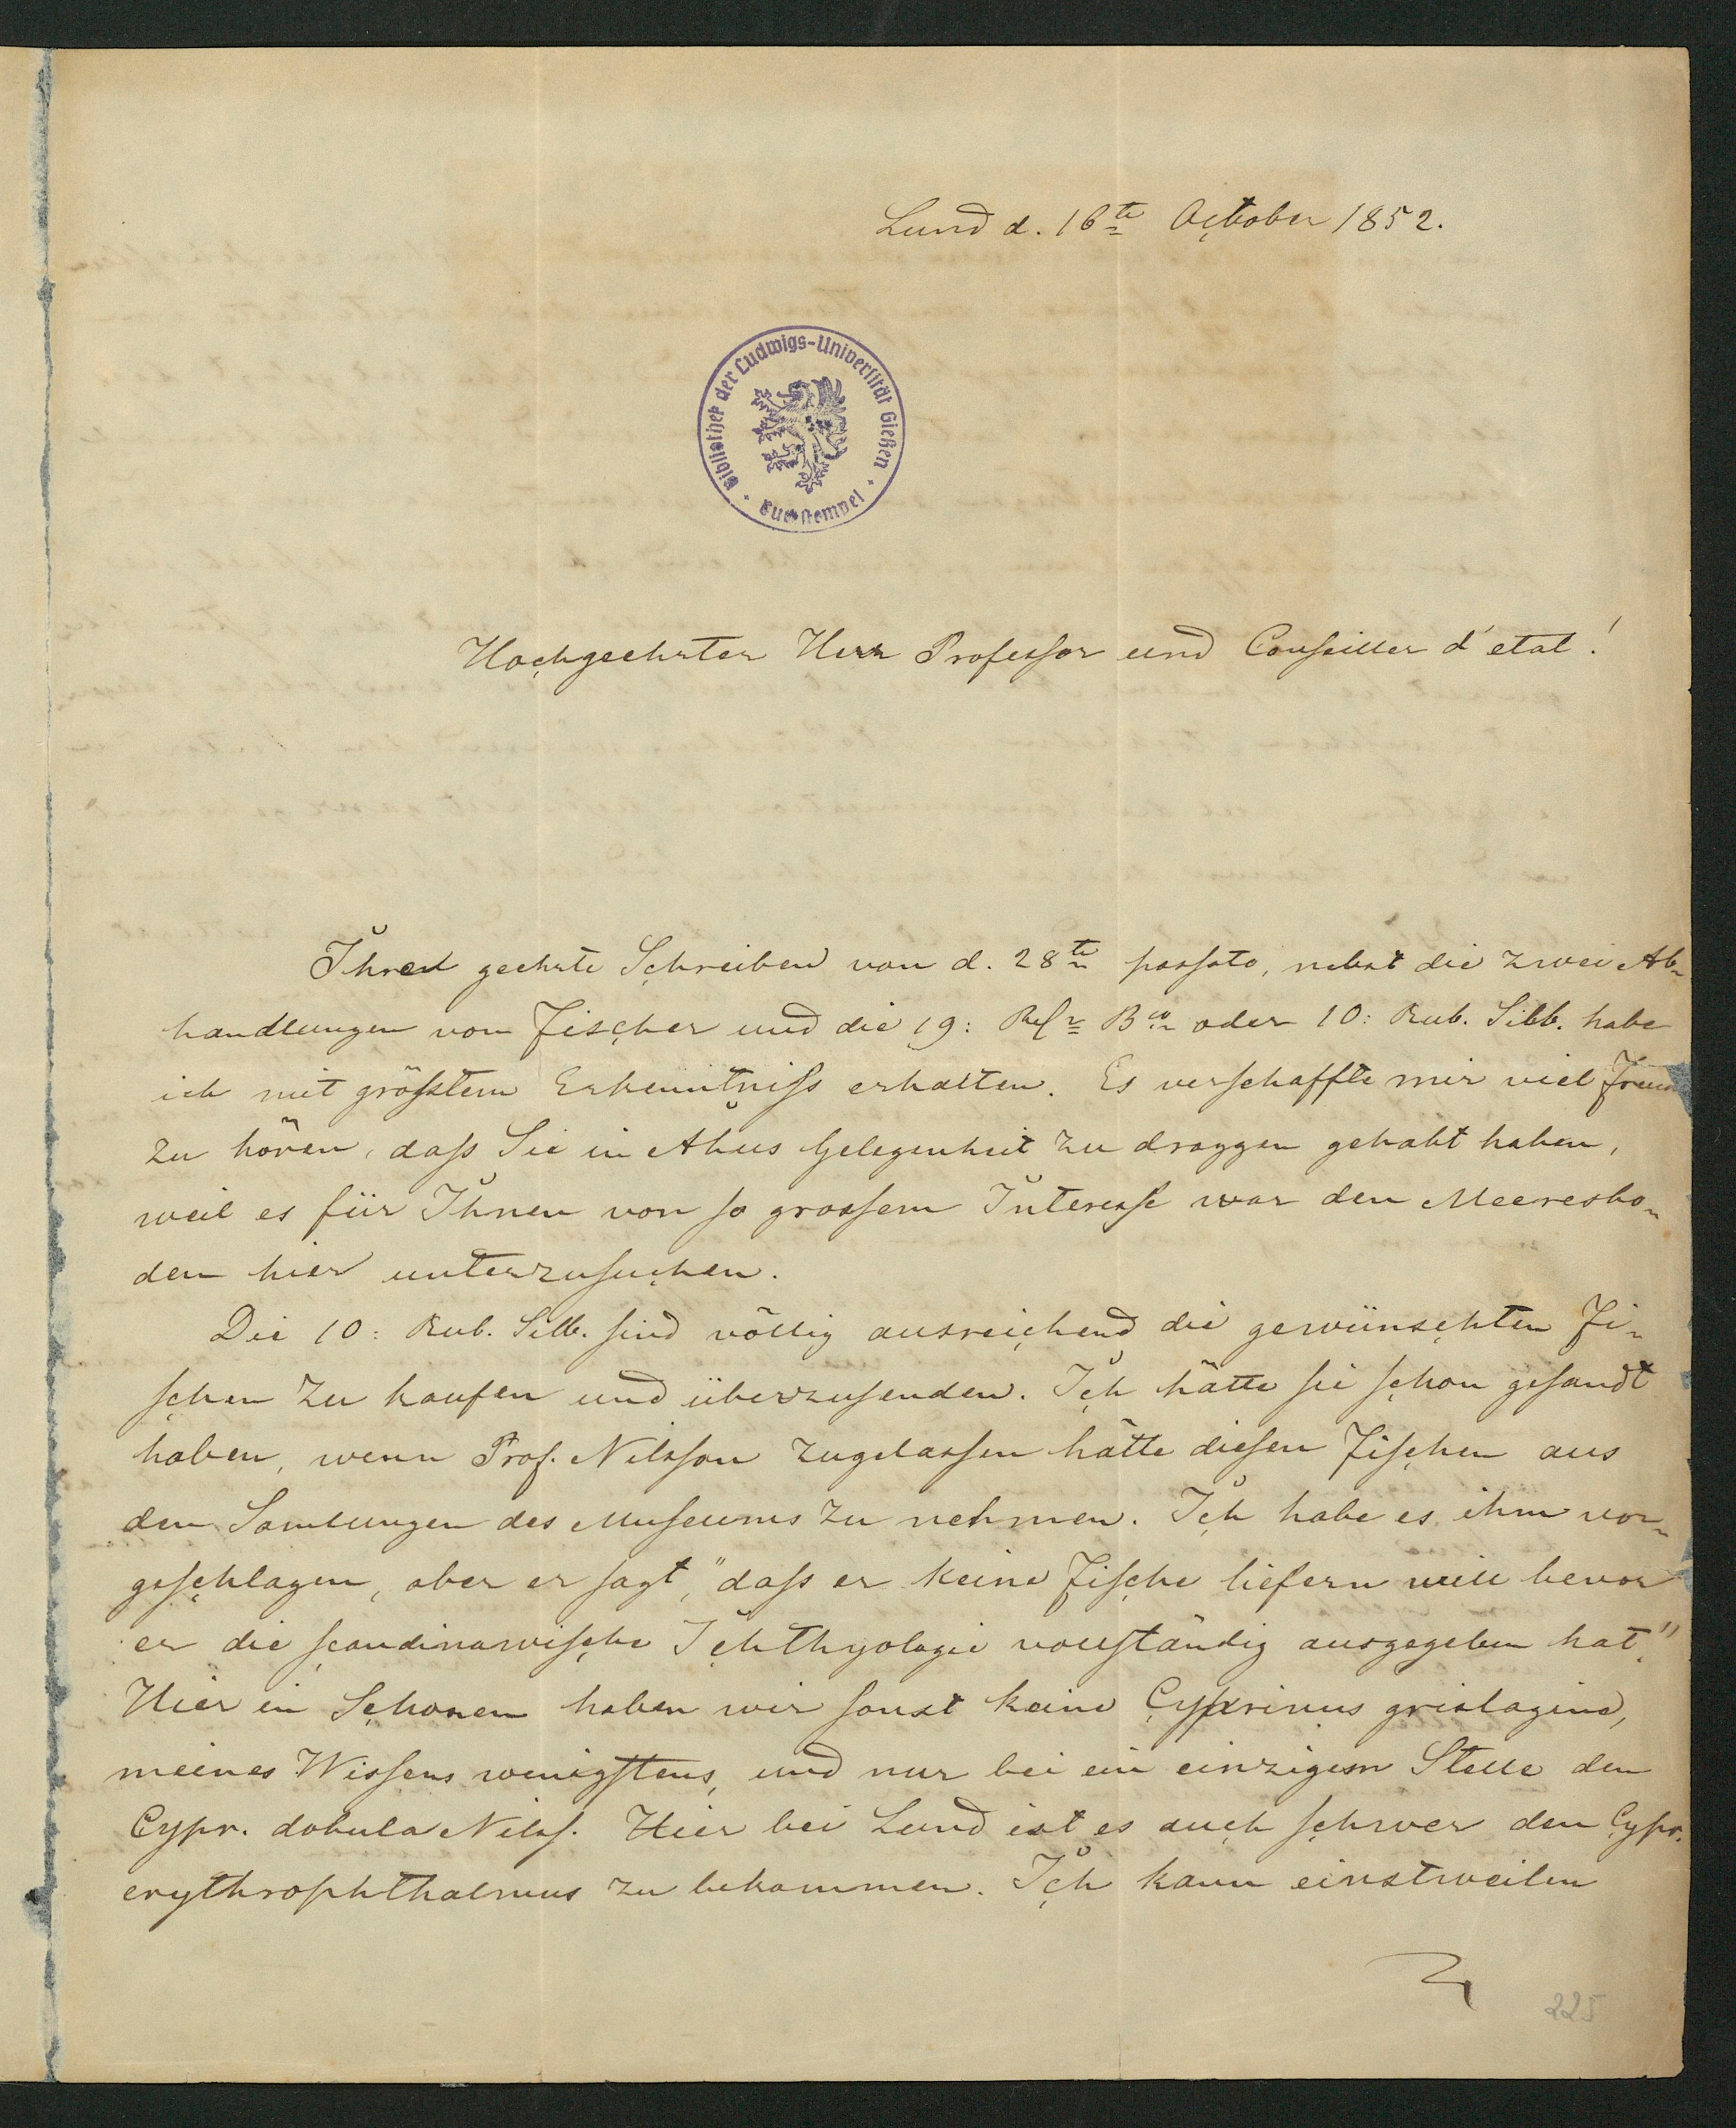 Lund d. 16te October 1852.
Bibliothek der Ludwigs-Universität Gießen
Hochgeehrter Herr Professor und Conseiller d'état!
Ihres geehrte Schreiben von d. 28te passato, nebst die zwei Ab-
handlungen von Fischer und die 19: Rdr Bco oder 10: Rub. Silb. habe
ich mit grösstem Erkenntniss erhalten. Es verschaffte mir viel Freud
zu hören, dass Sie in Ahus Gelegenheit zu draggen gehabt haben,
weil es für Ihnen von so grossem Interesse war den Meeresbo-
den hier unterzusuchen.
Die 10: Rub. Silb. sind völlig ausreichend die gewünschten Fi-
schen zu kaufen und überzusenden. Ich hätte sie schon gesandt
haben, wenn Prof. Nilsson zugelassen hätte diesen Fischen aus
den Samlungen des Museums zu nehmen. Ich habe es ihm vor-
geschlagen, aber er sagt, "dass er keine Fische liefern will bevor
er die scandinawische Ichthyologie vollständig ausgegeben hat".
Hier in Schonen haben wir sonst keine Cyprinus grislagine,
meines Wissens wenigstens, und nur bei ein einzigem Stelle den
Cypr. dobula Nilss. Hier bei Lund ist es auch schwer den Cypr.
erythrophthalmus zu bekommen. Ich kann einstweilen
225